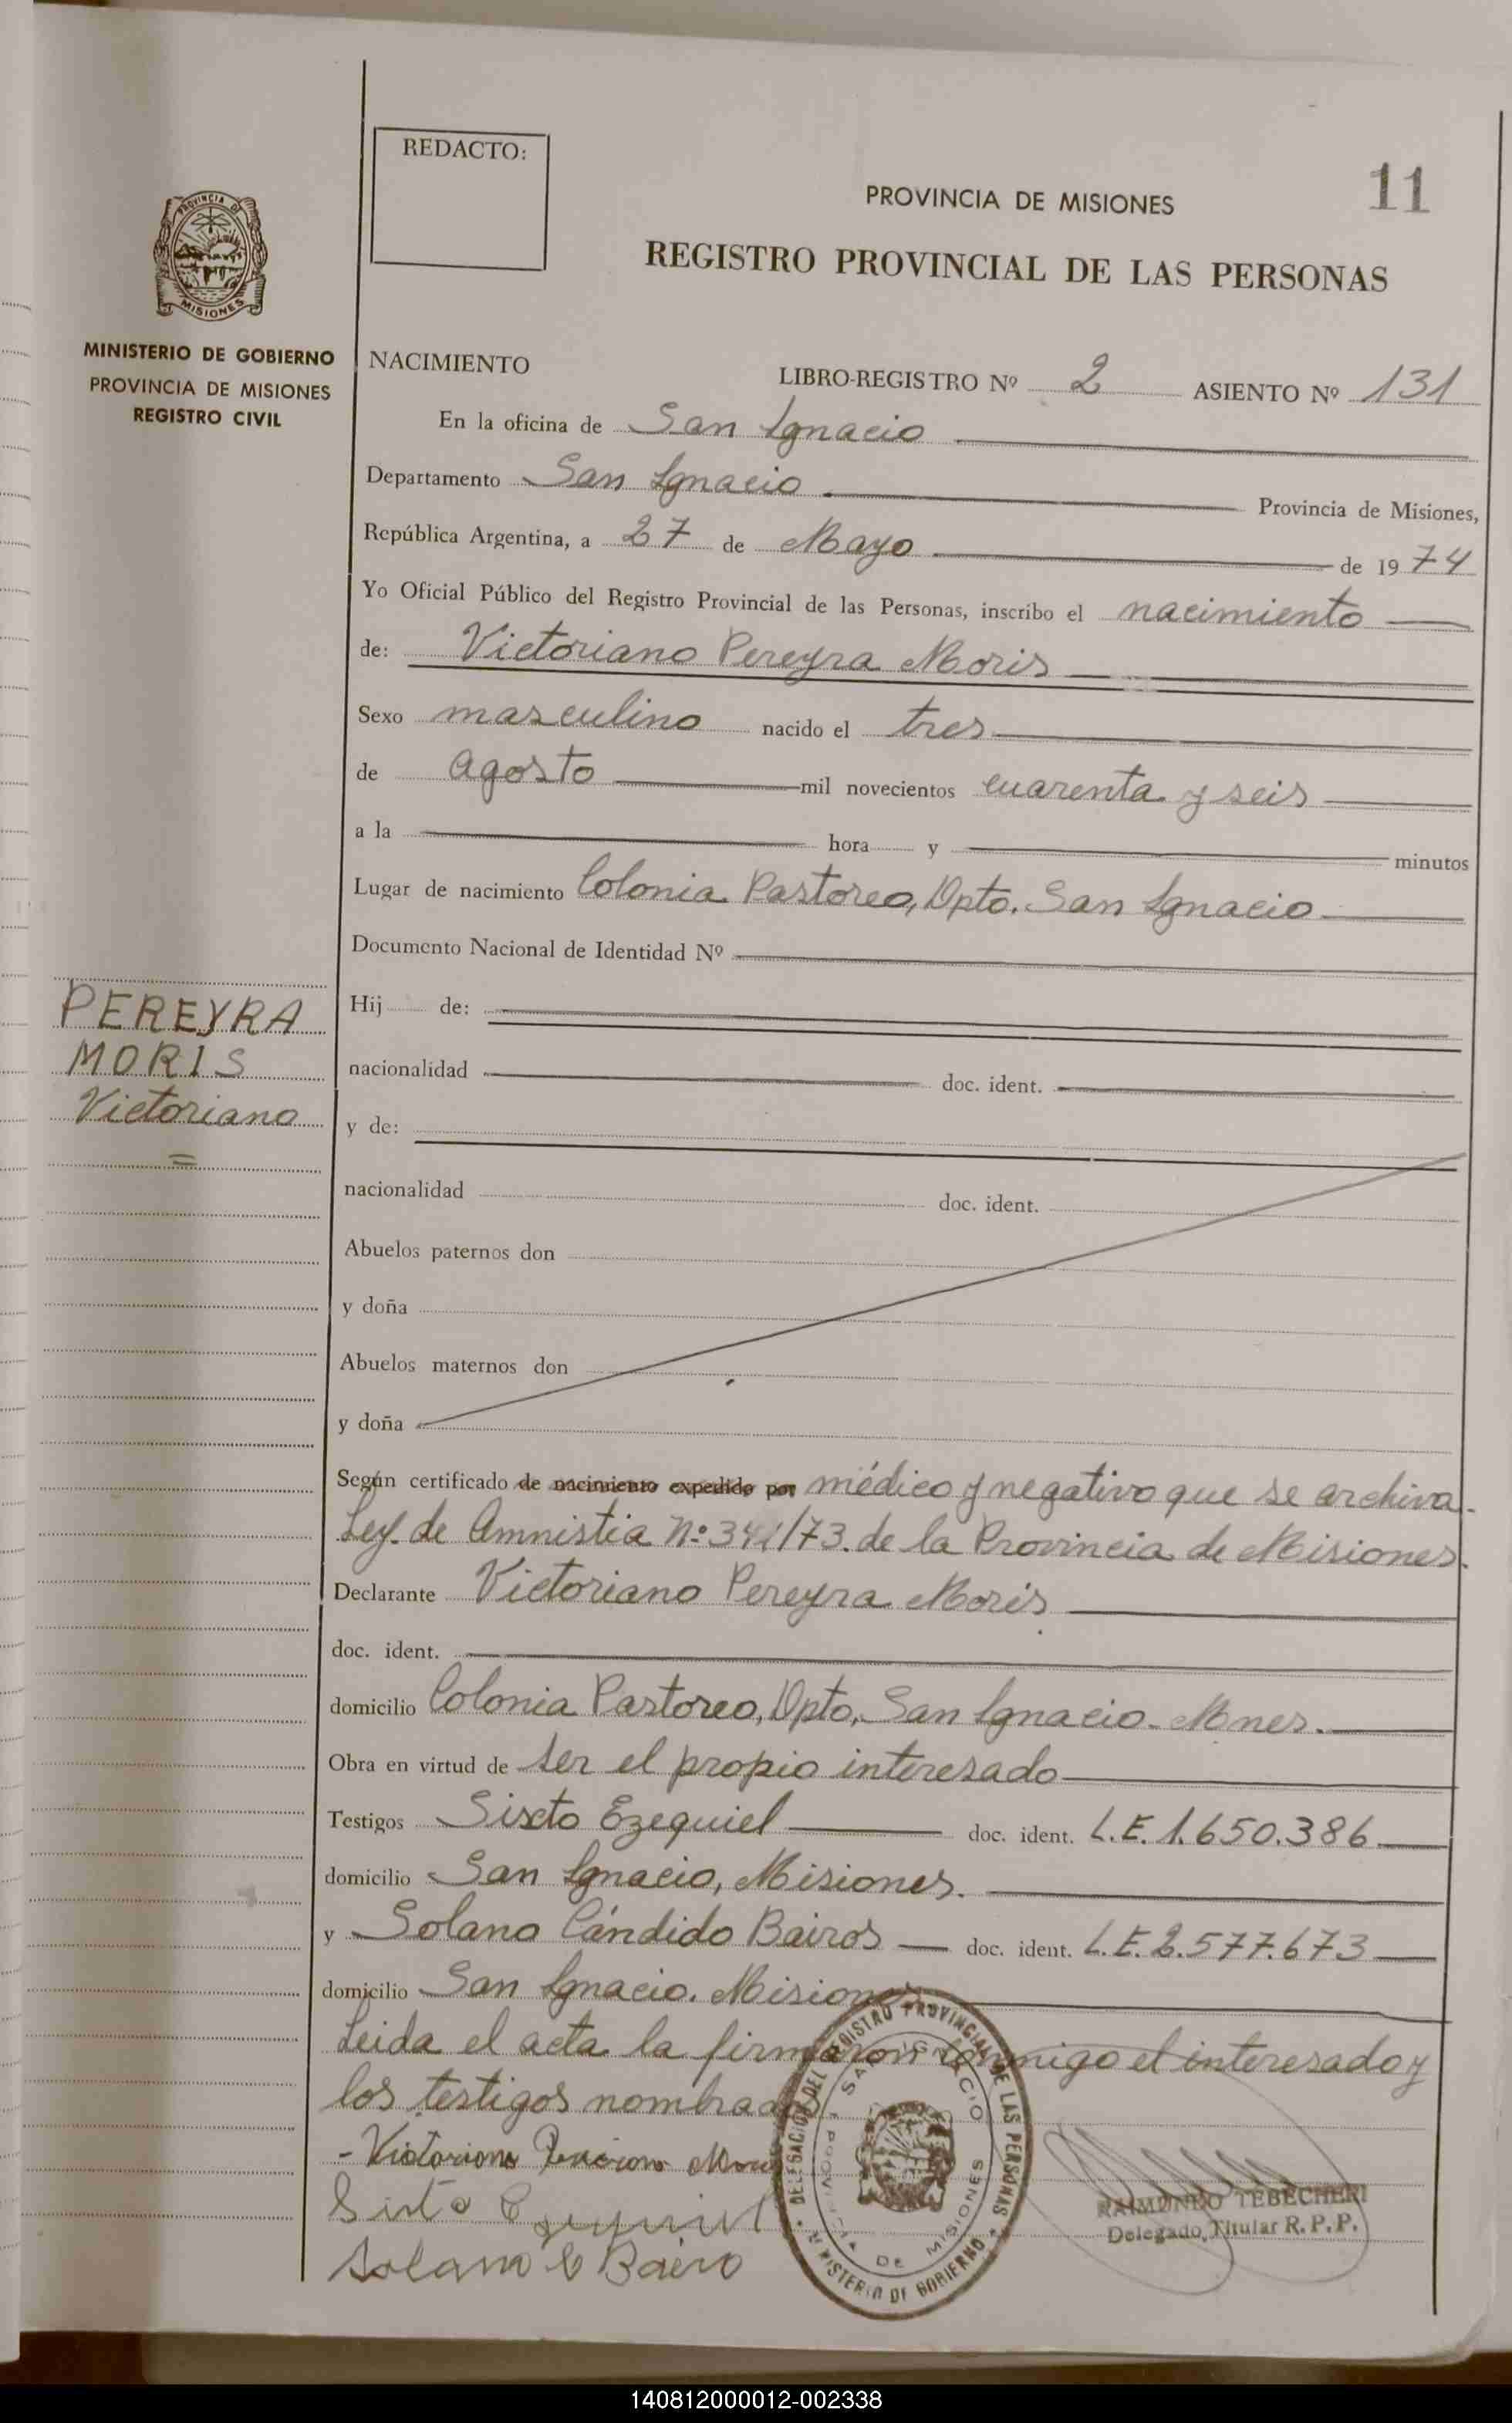 REDACTO:
11
PROVINCIA DE MISIONES
REGISTRO PROVINCIAL DE LAS PERSONAS
PROVINCIA DE
MISIONES
MINISTERIO DE GOBIERNO
PROVINCIA DE MISIONES
REGISTRO CIVIL
NACIMIENTO
LIBRO-REGISTRO Nº 2 ASIENTO Nº 131
En la oficina de San Ignacio
Departamento San Ignacio Provincia de Misiones,
República Argentina, a 27 de Mayo de 1974
Yo Oficial Público del Registro Provincial de las Personas, inscribo el nacimiento
de: Victoriano Pereyra Moris
Sexo masculino nacido el tres
de agosto mil novecientos cuarenta y seis
a la hora y minutos
Lugar de nacimiento Colonia Pastoreo, Dpto. San Ignacio
Documento Nacional de Identidad Nº
PEREYRA
MORIS
Victoriano
Hij de:
nacionalidad doc. ident.
y de:
nacionalidad doc. ident.
Abuelos paternos don
y doña
Abuelos maternos don
y doña
Según certificado de nacimiento expedido por médico y negativo que se archiva.
Ley de Amnistia Nº 341/73. de la Provincia de Misiones.
Declarante Victoriano Pereyra Moris
doc. ident.
domicilio Colonia Pastoreo, Dpto. San Ignacio. Mnes.
Obra en virtud de ser el propio interesado
Testigos Sixto Ezequiel doc. ident. L.E. 1.650.386
domicilio San Ignacio, Misiones.
y Solano Cándido Bairos doc. ident. L.E. 2.577.673
domicilio San Ignacio. Misiones
Leida el acta la firmaron conmigo el interesado y
los testigos nombrados
- Victoriano
Sixto Ezequiel
Solano C Bairo
DELEGACION DEL REGISTRO PROVINCIAL DE LAS PERSONAS
SAN IGNACIO
PROVINCIA DE MISIONES
MINISTERIO DE GOBIERNO
RAIMUNDO TEBECHERI
Delegado Titular R. P. P.
140812000012-002338